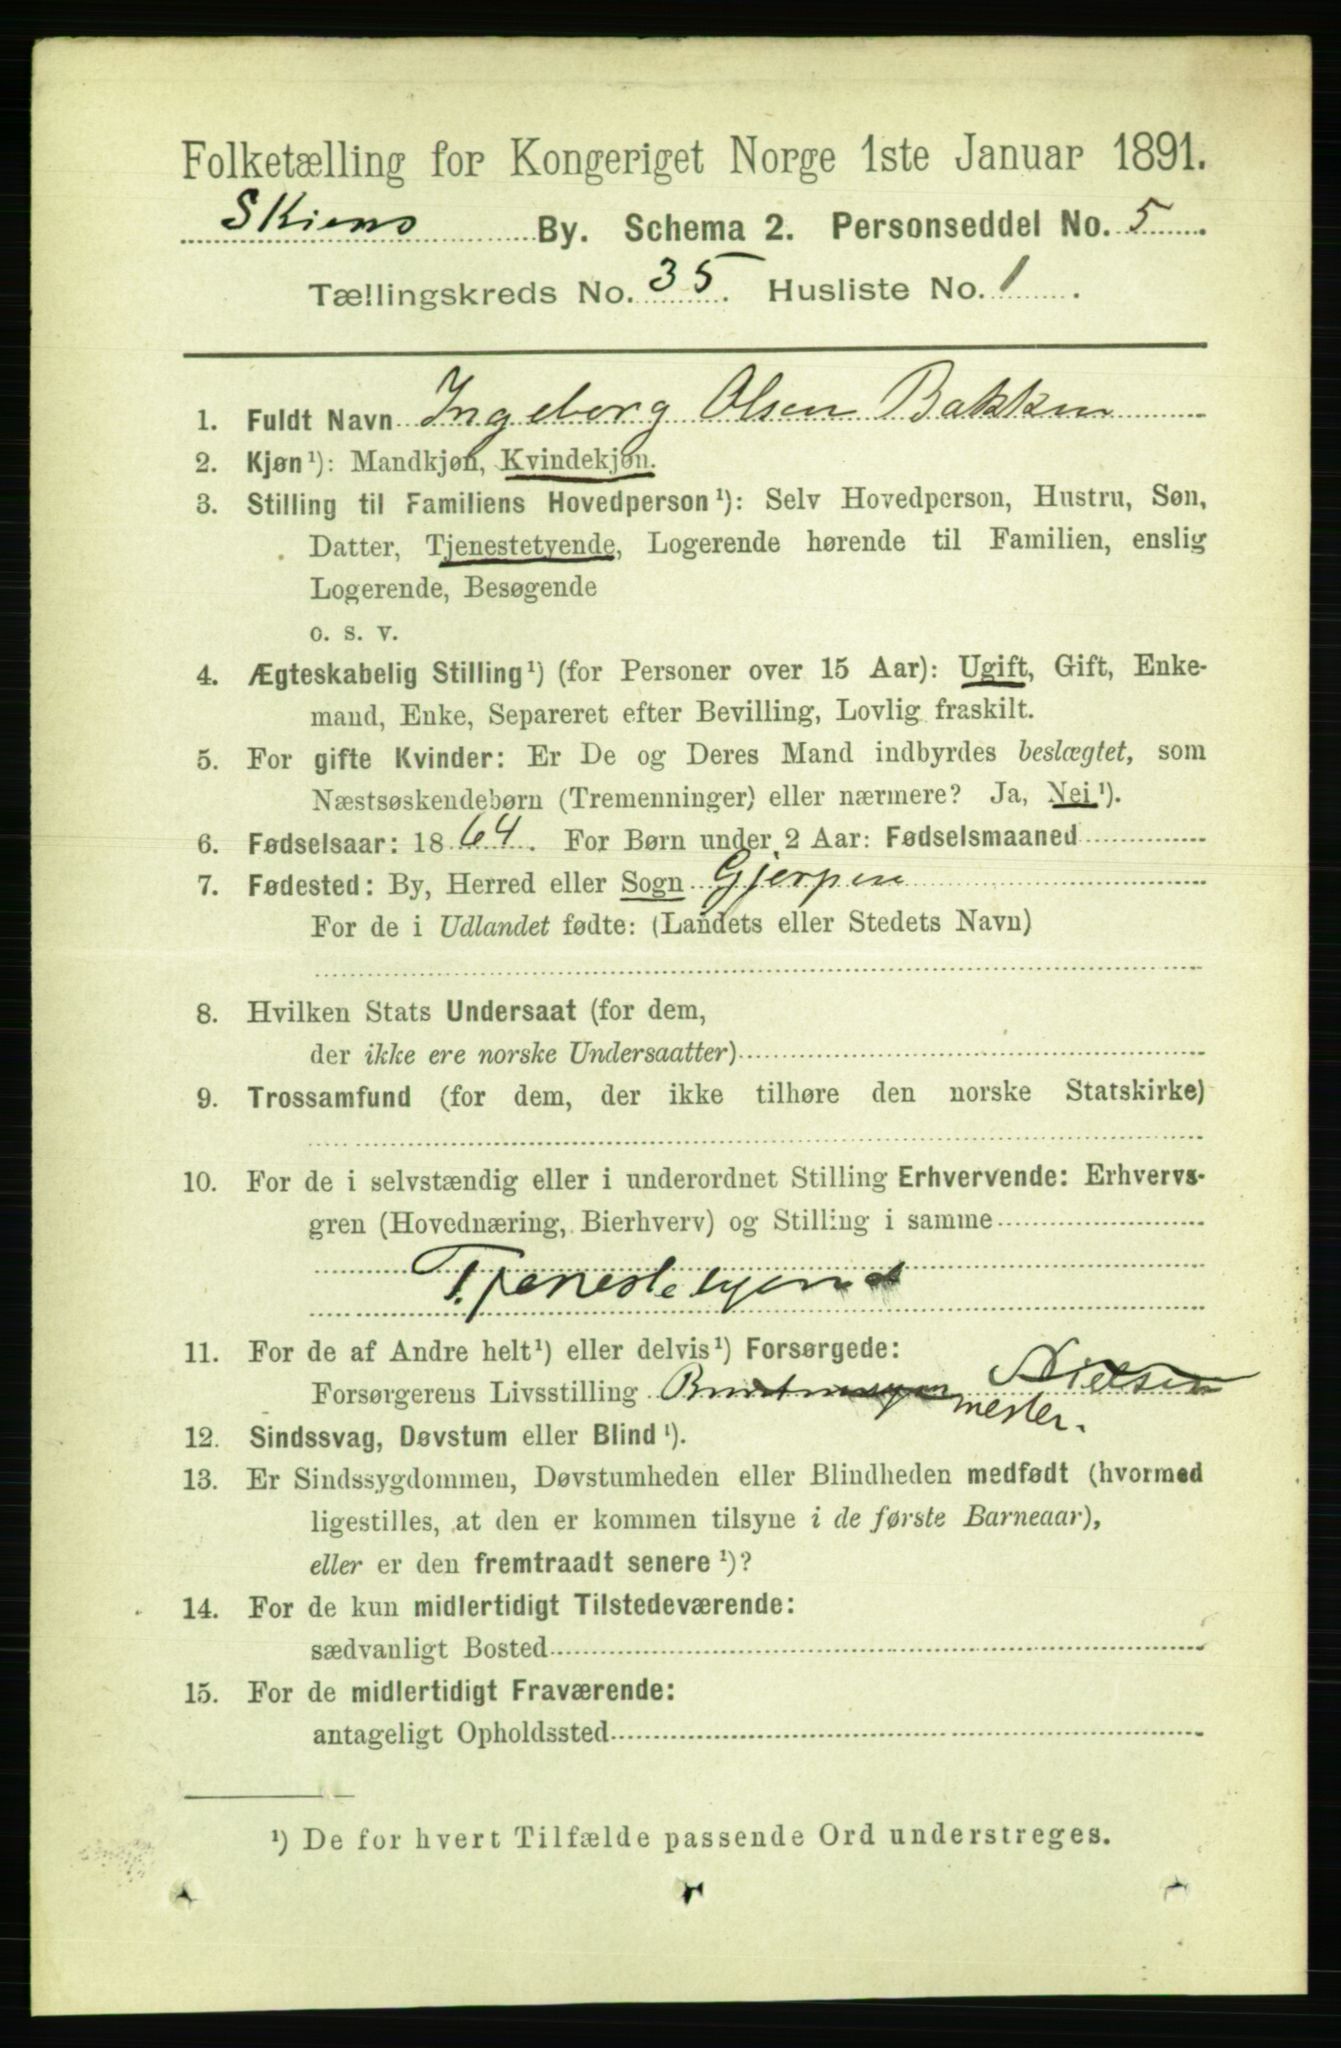 Folketælling for Kongeriget Norge 1ste Januar 1891.
Skiens By. Schema 2. Personseddel No. 5.
Tællingskreds No. 35. Husliste No. 1.
1. Fuldt Navn Ingeborg Olsen Bakken
2. Kjøn¹): Mandkjøn, Kvindekjøn.
3. Stilling til Familiens Hovedperson¹): Selv Hovedperson, Hustru, Søn,
Datter, Tjenestetyende, Logerende hørende til Familien, enslig
Logerende, Besøgende
o. s. v.
4. Ægteskabelig Stilling¹) (for Personer over 15 Aar): Ugift, Gift, Enke-
mand, Enke, Separeret efter Bevilling, Lovlig fraskilt.
5. For gifte Kvinder: Er De og Deres Mand indbyrdes beslægtet, som
Næstsøskendebørn (Tremenninger) eller nærmere? Ja, Nei¹).
6. Fødselsaar: 1864. For Børn under 2 Aar: Fødselsmaaned
7. Fødested: By, Herred eller Sogn Gjerpen
For de i Udlandet fødte: (Landets eller Stedets Navn)
8. Hvilken Stats Undersaat (for dem,
der ikke ere norske Undersaatter)
9. Trossamfund (for dem, der ikke tilhøre den norske Statskirke)
10. For de i selvstændig eller i underordnet Stilling Erhvervende: Erhvervs-
gren (Hovednæring, Bierhverv) og Stilling i samme
Tjenestetyende
11. For de af Andre helt¹) eller delvis¹) Forsørgede:
Forsørgerens Livsstilling Nielsen
mester.
12. Sindssvag, Døvstum eller Blind¹).
13. Er Sindssygdommen, Døvstumheden eller Blindheden medfødt (hvormed
ligestilles, at den er kommen tilsyne i de første Barneaar),
eller er den fremtraadt senere¹)?
14. For de kun midlertidigt Tilstedeværende:
sædvanligt Bosted
15. For de midlertidigt Fraværende:
antageligt Opholdssted
¹) De for hvert Tilfælde passende Ord understreges.